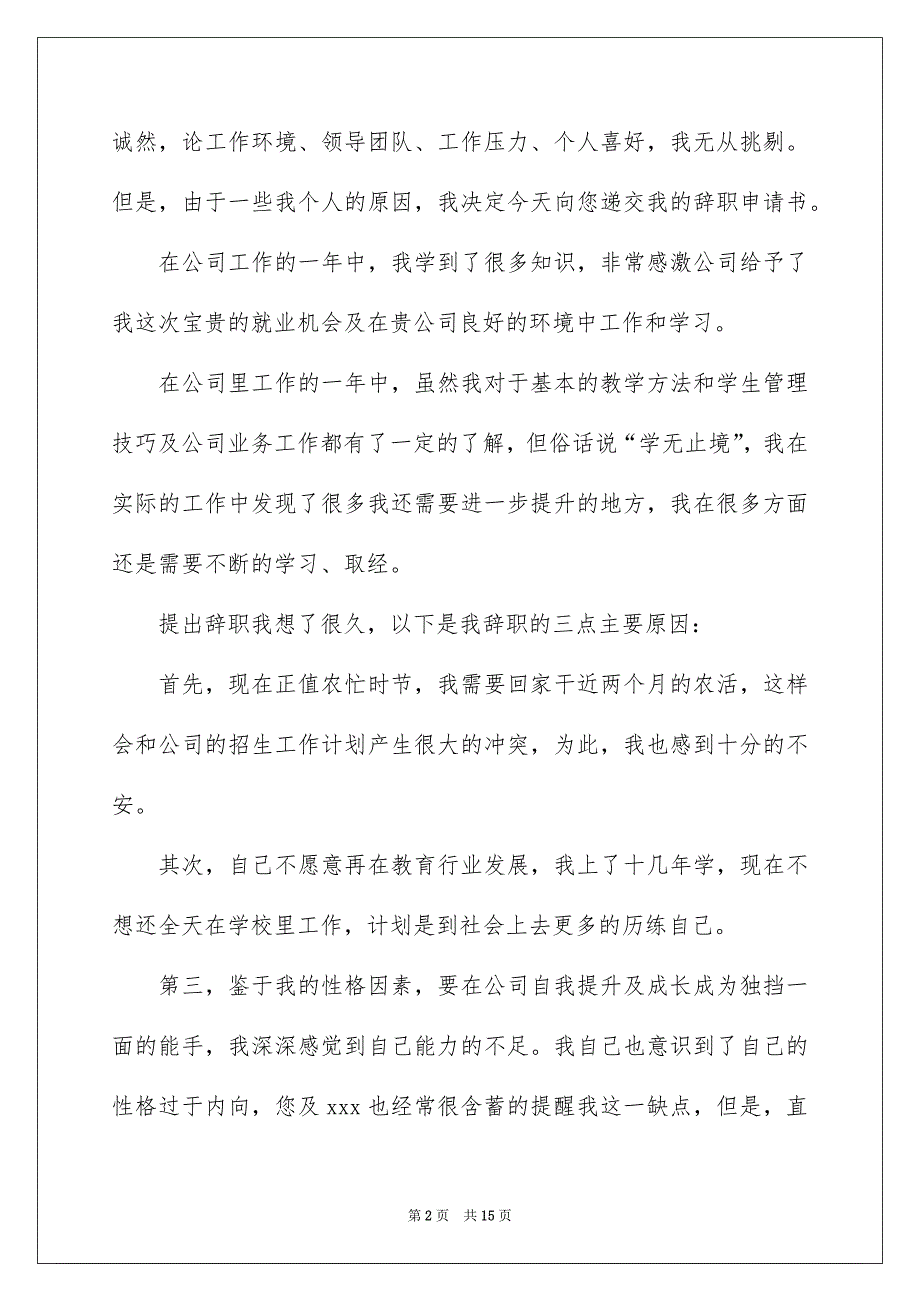 诚然，论工作环境、领导团队、工作压力、个人喜好，我无从挑剔。
但是，由于一些我个人的原因，我决定今天向您递交我的辞职申请书。
在公司工作的一年中，我学到了很多知识，非常感激公司给予了
我这次宝贵的就业机会及在贵公司良好的环境中工作和学习。
在公司里工作的一年中，虽然我对于基本的教学方法和学生管理
技巧及公司业务工作都有了一定的了解，但俗话说“学无止境”，我在
实际的工作中发现了很多我还需要进一步提升的地方，我在很多方面
还是需要不断的学习、取经。
提出辞职我想了很久，以下是我辞职的三点主要原因：
首先，现在正值农忙时节，我需要回家干近两个月的农活，这样
会和公司的招生工作计划产生很大的冲突，为此，我也感到十分的不
安。
其次，自己不愿意再在教育行业发展，我上了十几年学，现在不
想还全天在学校里工作，计划是到社会上去更多的历练自己。
第三，鉴于我的性格因素，要在公司自我提升及成长成为独挡一
面的能手，我深深感觉到自己能力的不足。我自己也意识到了自己的
性格过于内向，您及 xxx 也经常很含蓄的提醒我这一缺点，但是，直
第 2 页 共 15 页